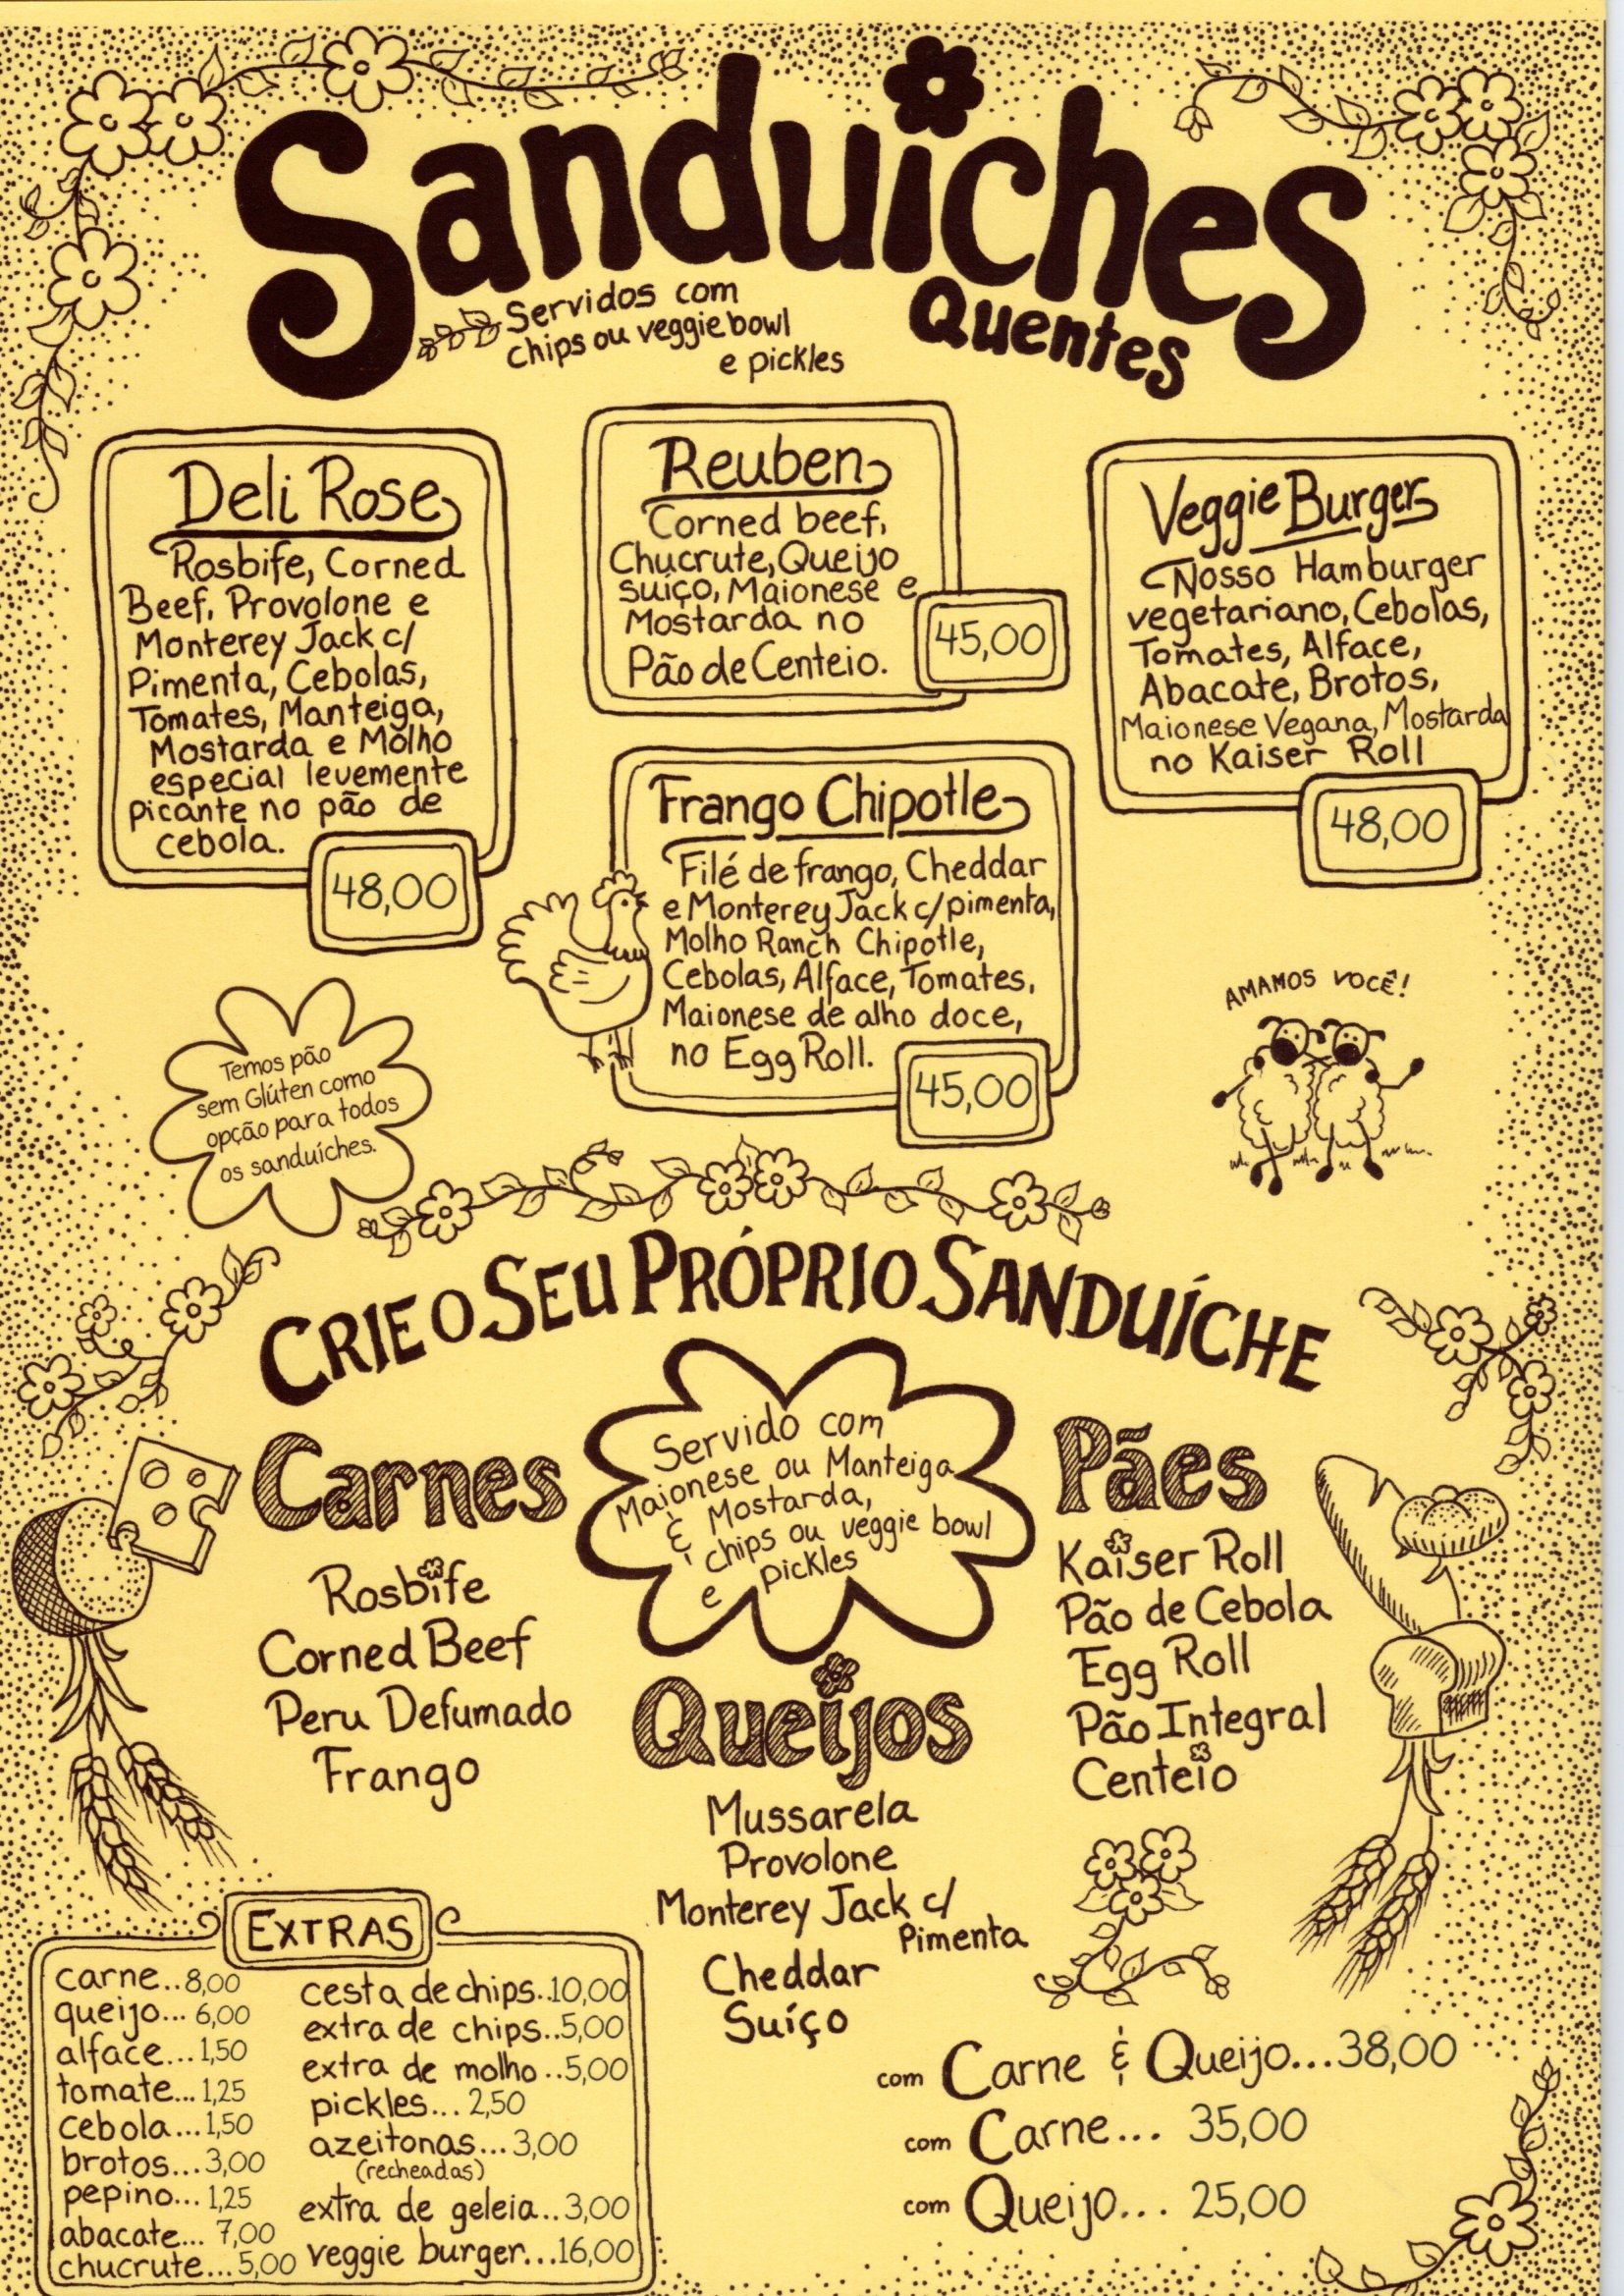 Sanduíches
Quentes
Servidos com
chips ou veggie bowl
e pickles
Deli Rose
Rosbife, Corned
Beef, Provolone e
Monterey Jack c/
Pimenta, Cebolas,
Tomates, Manteiga,
Mostarda e Mólho
especial levemente
picante no pão de
cebola.
48,00
Reuben
Corned beef,
Chucrute, Queijo
suíço, Maionese e
Mostarda no
Pão de Centeio.
45,00
Veggie Burger
Nosso Hamburger
vegetariano, Cebolas,
Tomates, Alface,
Abacate, Brotos,
Maionese Vegana, Mostarda
no Kaiser Roll
48,00
Frango Chipotle
Filé de frango, Cheddar
e Monterey Jack c/pimenta,
Molho Ranch Chipotle,
Cebolas, Alface, Tomates,
Maionese de alho doce,
no Egg Roll.
45,00
Temos pão
sem Glúten como
opção para todos
os sanduíches.
AMAMOS VOCÊ!
CRIE O SEU PRÓPRIO SANDUÍCHE
Servido com
Maionese ou Manteiga
& Mostarda,
chips ou veggie bowl
e pickles
Carnes
Rosbife
Corned Beef
Peru Defumado
Frango
Queijos
Mussarela
Provolone
Monterey Jack c/
Pimenta
Cheddar
Suíço
Pães
Kaiser Roll
Pão de Cebola
Egg Roll
Pão Integral
Centeio
EXTRAS
carne..8,00
queijo... 6,00
alface...1,50
tomate...1,25
cebola...1,50
brotos...3,00
pepino...1,25
abacate... 7,00
chucrute...5,00
cesta de chips..10,00
extra de chips..5,00
extra de molho..5,00
pickles...2,50
azeitonas...3,00
(recheadas)
extra de geleia..3,00
veggie burger...16,00
com Carne & Queijo...38,00
com Carne... 35,00
com Queijo... 25,00